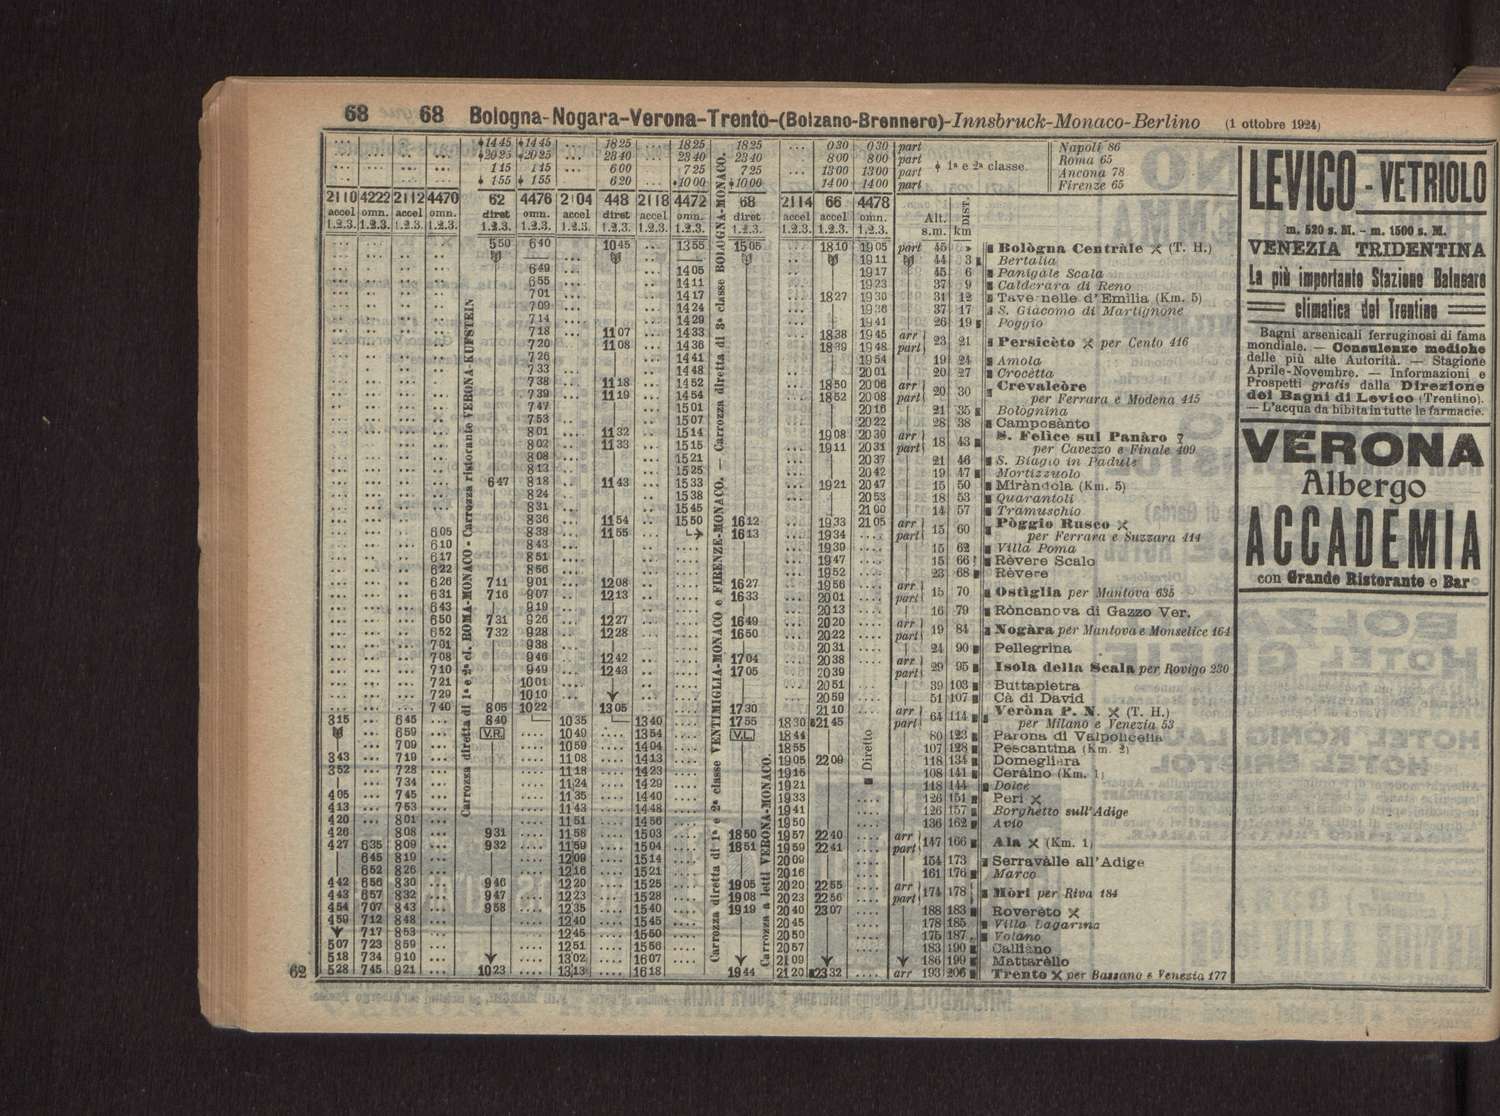 68 68 Bologna-Nogara-Verona-Trento-(Bolzano-Brennero)-Innsbruck-Monaco-Berlino (1 ottobre 1924)
1825 1825 1825 ... 030 030 part Napoli 86
2340 2340 2340 ... 800 800 part Roma 65
115 115 ... 600 725 725 ... 1300 1300 part Ancona 78
155 155 ... 620 1000 1000 ... 1400 1400 part Firenze 65
1ª e 2ª classe.
2110 4222 2112 4470 62 4476 2104 448 2118 4472 68 2114 66 4478
accel omn. accel omn. diret omn. accel diret accel omn. diret accel accel omn. Alt. DIST.
1.2.3. 1.2.3. 1.2.3. 1.2.3. 1.2.3. 1.2.3. 1.2.3. 1.2.3. 1.2.3. 1.2.3. 1.2.3. 1.2.3. 1.2.3. 1.2.3. s.m. km
550 640 1045 1355 1505 1810 1905 part 45 » Bològna Centràle (T. H.)
1911 44 3 Bertalia
649 1405 1917 45 6 Panigale Scala
655 1411 1923 37 9 Calderara di Reno
701 1417 1827 1930 31 12 Tavernelle d'Emilia (Km. 5)
709 1424 1936 37 17 S. Giacomo di Martignone
714 1429 1941 26 19 Poggio
718 1107 1433 1838 1945 arr
720 1108 1436 1839 1948 part 23 21 Persicèto per Cento 416
726 1441 1954 19 24 Amola
733 1448 2001 20 27 Crocetta
738 1118 1452 1850 2006 arr 20 30 Crevalcòre
739 1119 1454 1852 2008 part per Ferrara e Modena 415
747 1501 2016 21 35 Bolognina
753 1507 2022 28 38 Camposànto
801 1132 1514 1908 2030 arr 18 43 S. Felice sul Panàro
802 1133 1515 1911 2031 part per Cavezzo e Finale 409
808 1521 2037 21 46 S. Biagio in Padule
813 1525 2042 19 47 Mortizzuolo
647 818 1143 1533 1921 2047 15 50 Miràndola (Km. 5)
824 1538 2053 18 53 Quarantoli
831 1545 2100 14 57 Tramuschio
836 1154 1550 1612 1933 2105 arr 15 60 Pòggio Rusco
605 838 1155 1613 1934 part per Ferrara e Suzzara 414
610 843 1939 15 62 Villa Poma
617 851 1947 15 66 Rèvere Scalo
622 856 1952 23 68 Rèvere
626 711 901 1208 1627 1956 arr
631 716 907 1213 1633 2001 part 15 70 Ostiglia per Mantova 635
643 919 2013 16 79 Ròncanova di Gazzo Ver.
650 731 926 1227 1649 2020 arr
652 732 928 1228 1650 2022 part 19 84 Nogàra per Mantova e Monselice 164
701 938 2031 24 90 Pellegrina
708 946 1242 1704 2038 arr
710 949 1243 1705 2039 part 29 95 Isola della Scala per Rovigo 230
721 1001 2051 39 103 Buttapietra
729 1010 2059 51 107 Cà di David
740 805 1022 1305 1730 2110 arr 64 114 Veròna P. N. (T. H.)
315 645 840 1035 1340 1755 1830 2145 part per Milano e Venezia 53
659 V.R. 1049 1354 V.L. 1844 80 123 Parona di Valpolicella
709 1059 1404 1855 107 128 Pescantina (Km. 2)
343 719 1108 1413 1905 2209 118 134 Domegliàra
352 728 1118 1423 1915 108 141 Ceràino (Km. 1)
734 1124 1429 1921 118 144 Dolcè
405 745 1135 1440 1933 126 151 Peri
413 753 1143 1448 1941 126 157 Borghetto sull'Adige
420 801 1151 1456 1950 136 162 Avio
426 808 931 1158 1503 1850 1957 2240 arr
427 635 809 932 1159 1504 1851 1959 2241 part 147 166 Ala (Km. 1)
645 819 1209 1514 2009 154 173 Serravàlle all'Adige
652 826 1216 1521 2016 161 176 Marco
442 656 830 946 1220 1525 1905 2020 2255 arr
443 657 832 947 1223 1528 1908 2023 2256 part 174 178 Mòri per Riva 184
454 707 843 958 1235 1540 1919 2040 2307 188 183 Roverèto
459 712 848 1240 1545 2045 178 185 Villa Lagarina
717 853 1245 1550 2050 175 187 Volano
507 723 859 1251 1556 2057 183 190 Calliàno
518 734 910 1302 1607 2109 186 199 Mattarèllo
528 745 921 1023 1313 1618 1944 2120 2332 arr 193 206 Trento per Bassano e Venezia 177
Carrozza diretta di 1ª e 2ª cl. ROMA-MONACO - Carrozza ristorante VERONA-KUFSTEIN
Carrozza diretta di 1ª e 2ª classe VENTIMIGLIA-MONACO e FIRENZE-MONACO. — Carrozza diretta di 3ª classe BOLOGNA-MONACO.
Carrozza a letti VERONA-MONACO.
Diretto
62
LEVICO - VETRIOLO
m. 520 s. M. - m. 1500 s. M.
VENEZIA TRIDENTINA
La più importante Stazione Balneare
climatica del Trentino
Bagni arsenicali ferruginosi di fama
mondiale. — Consulenze mediche
delle più alte Autorità. — Stagione
Aprile-Novembre. — Informazioni e
Prospetti gratis dalla Direzione
dei Bagni di Levico (Trentino).
— L'acqua da bibita in tutte le farmacie.
VERONA
Albergo
ACCADEMIA
con Grande Ristorante e Bar